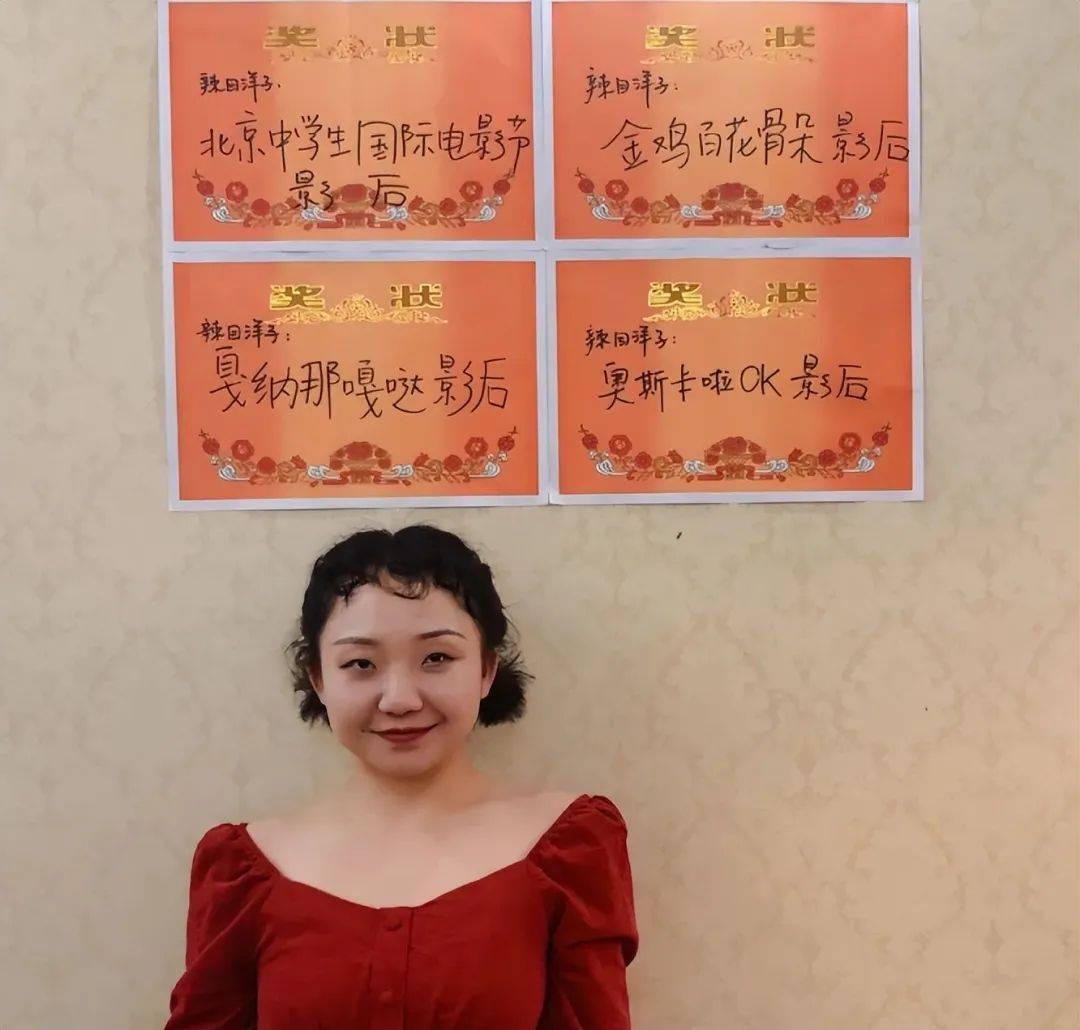 奖状
辣目洋子:
北京中学生国际电影节
影后
奖状
辣目洋子:
金鸡百花骨朵影后
奖状
辣目洋子:
戛纳那嘎哒影后
奖状
辣目洋子:
奥斯卡啦OK影后